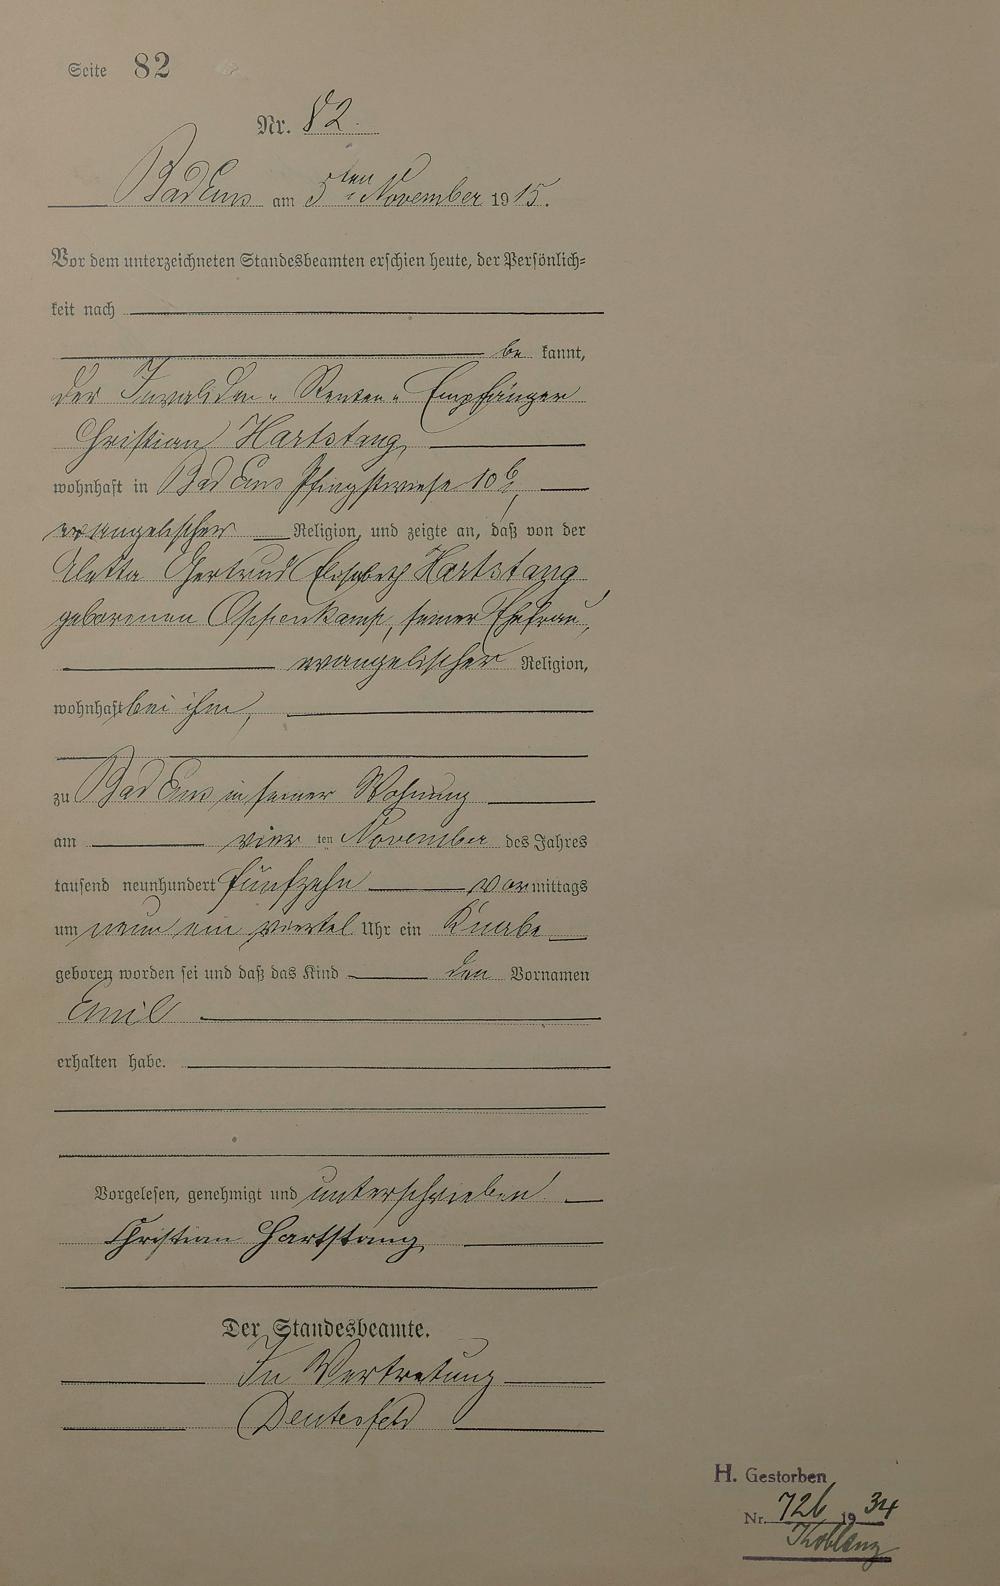 Seite 82
Nr. 82.
Bad Ems am 5ten November 1915.
Vor dem unterzeichneten Standesbeamten erschien heute, der Persönlich-
keit nach
be kannt,
der Invaliden-Renten-Empfänger
Christian Hartstang,
wohnhaft in Bad Ems Pfingstwiese 10b,
evangelischer Religion, und zeigte an, daß von der
Aletta Gertrud Elisabeth Hartstang
geborenen Oppenkamp, seiner Ehefrau,
evangelischer Religion,
wohnhaft bei ihm,
zu Bad Ems in seiner Wohnung
am vier ten November des Jahres
tausend neunhundert fünfzehn vormittags
um neun ein viertel Uhr ein Knabe
geboren worden sei und daß das Kind den Vornamen
Emil
erhalten habe.
Vorgelesen, genehmigt und unterschrieben
Christian Hartstang
Der Standesbeamte.
In Vertretung
Deutesfeld
H. Gestorben
Nr. 726 1934
Koblenz